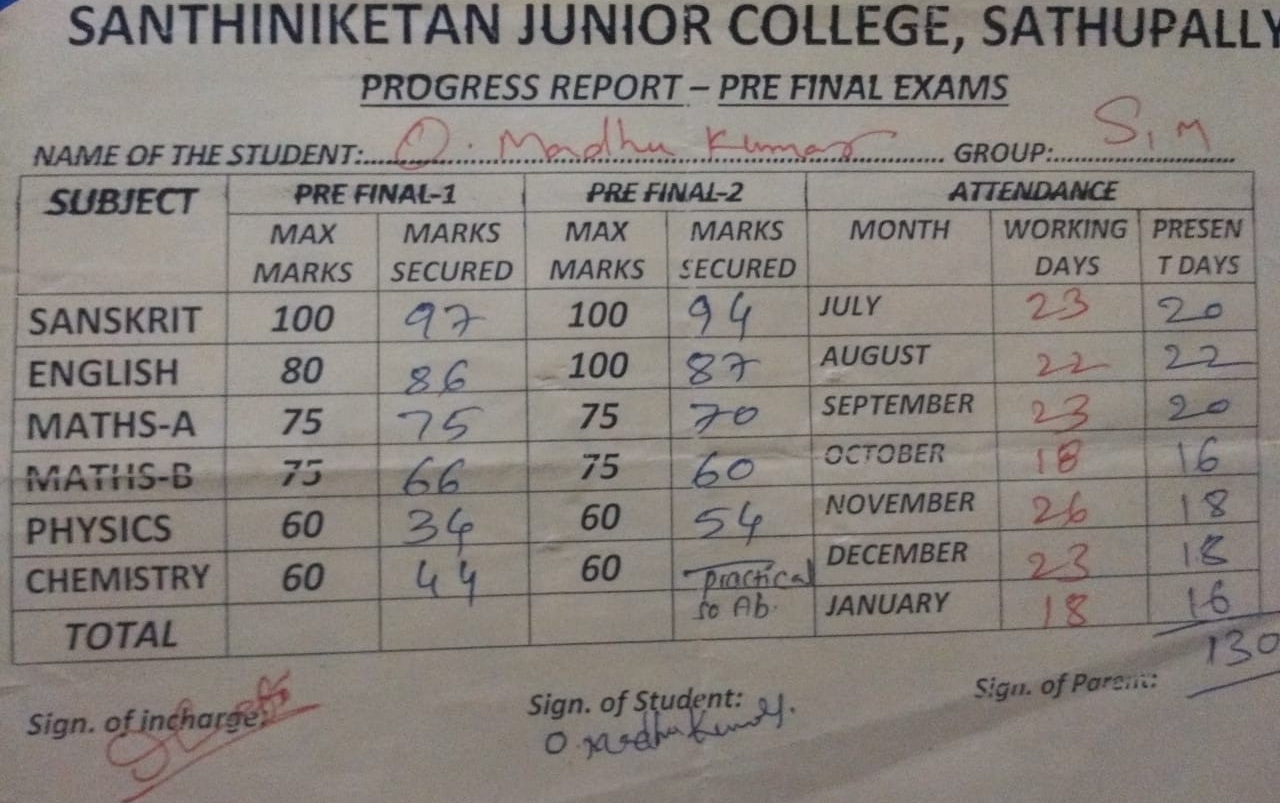 SANTHINIKETAN JUNIOR COLLEGE, SATHUPALLY
PROGRESS REPORT – PRE FINAL EXAMS
NAME OF THE STUDENT: O. Madhu Kumar GROUP: S, M
SUBJECT PRE FINAL-1 PRE FINAL-2 ATTENDANCE
MAX MARKS MAX MARKS MONTH WORKING PRESEN
MARKS SECURED MARKS SECURED DAYS T DAYS
SANSKRIT 100 97 100 94 JULY 23 20
ENGLISH 80 86 100 87 AUGUST 22 22
MATHS-A 75 75 75 70 SEPTEMBER 23 20
MATHS-B 75 66 75 60 OCTOBER 18 16
PHYSICS 60 34 60 54 NOVEMBER 26 18
CHEMISTRY 60 44 60 practical DECEMBER 23 18
so Ab. JANUARY 18 16
TOTAL
130
Sign. of incharge: Sign. of Student: Sign. of Parent:
O. Madhu Kumar.